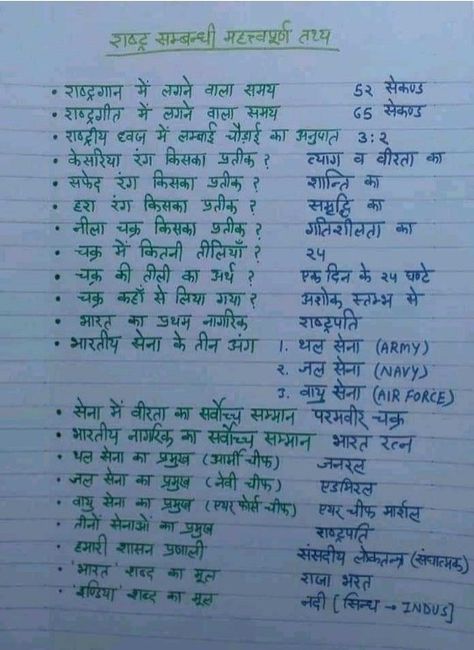 राष्ट्र सम्बन्धी महत्त्वपूर्ण तथ्य
• राष्ट्रगान में लगने वाला समय 5२ सेकण्ड
• राष्ट्रगीत में लगने वाला समय 65 सेकण्ड
• राष्ट्रीय ध्वज में लम्बाई चौड़ाई का अनुपात 3:२
• केसरिया रंग किसका प्रतीक ? त्याग व वीरता का
• सफेद रंग किसका प्रतीक ? शान्ति का
• हरा रंग किसका प्रतीक ? समृद्धि का
• नीला चक्र किसका प्रतीक ? गतिशीलता का
• चक्र में कितनी तीलियाँ ? २५
• चक्र की तीली का अर्थ ? एक दिन के २५ घण्टे
• चक्र कहाँ से लिया गया ? अशोक स्तम्भ से
• भारत का प्रथम नागरिक राष्ट्रपति
• भारतीय सेना के तीन अंग 1. थल सेना (ARMY)
२. जल सेना (NAVY)
3. वायु सेना (AIR FORCE)
• सेना में वीरता का सर्वोच्च सम्मान परमवीर चक्र
• भारतीय नागरिक का सर्वोच्च सम्मान भारत रत्न
• थल सेना का प्रमुख (आर्मी चीफ) जनरल
• जल सेना का प्रमुख (नेवी चीफ) एडमिरल
• वायु सेना का प्रमुख (एयर फोर्स चीफ) एयर चीफ मार्शल
• तीनों सेनाओं का प्रमुख राष्ट्रपति
• हमारी शासन प्रणाली संसदीय लोकतन्त्र (संघात्मक)
• 'भारत' शब्द का मूल राजा भरत
• 'इण्डिया' शब्द का मूल नदी [सिन्ध → INDUS]